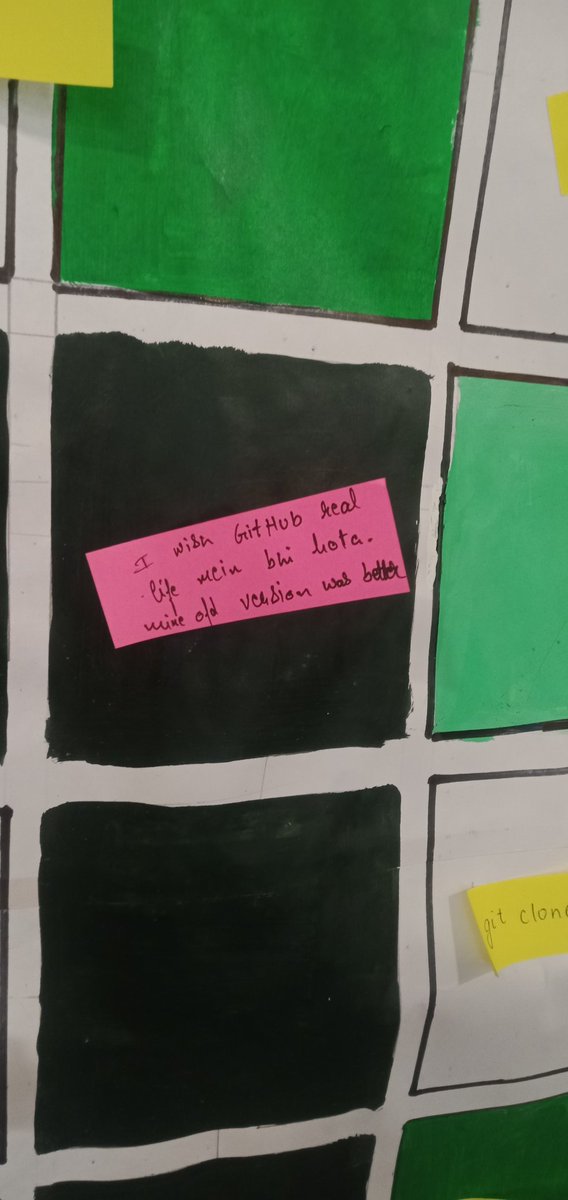 I wish GitHub real
life mein bhi hota.
mine old version was better
git clone